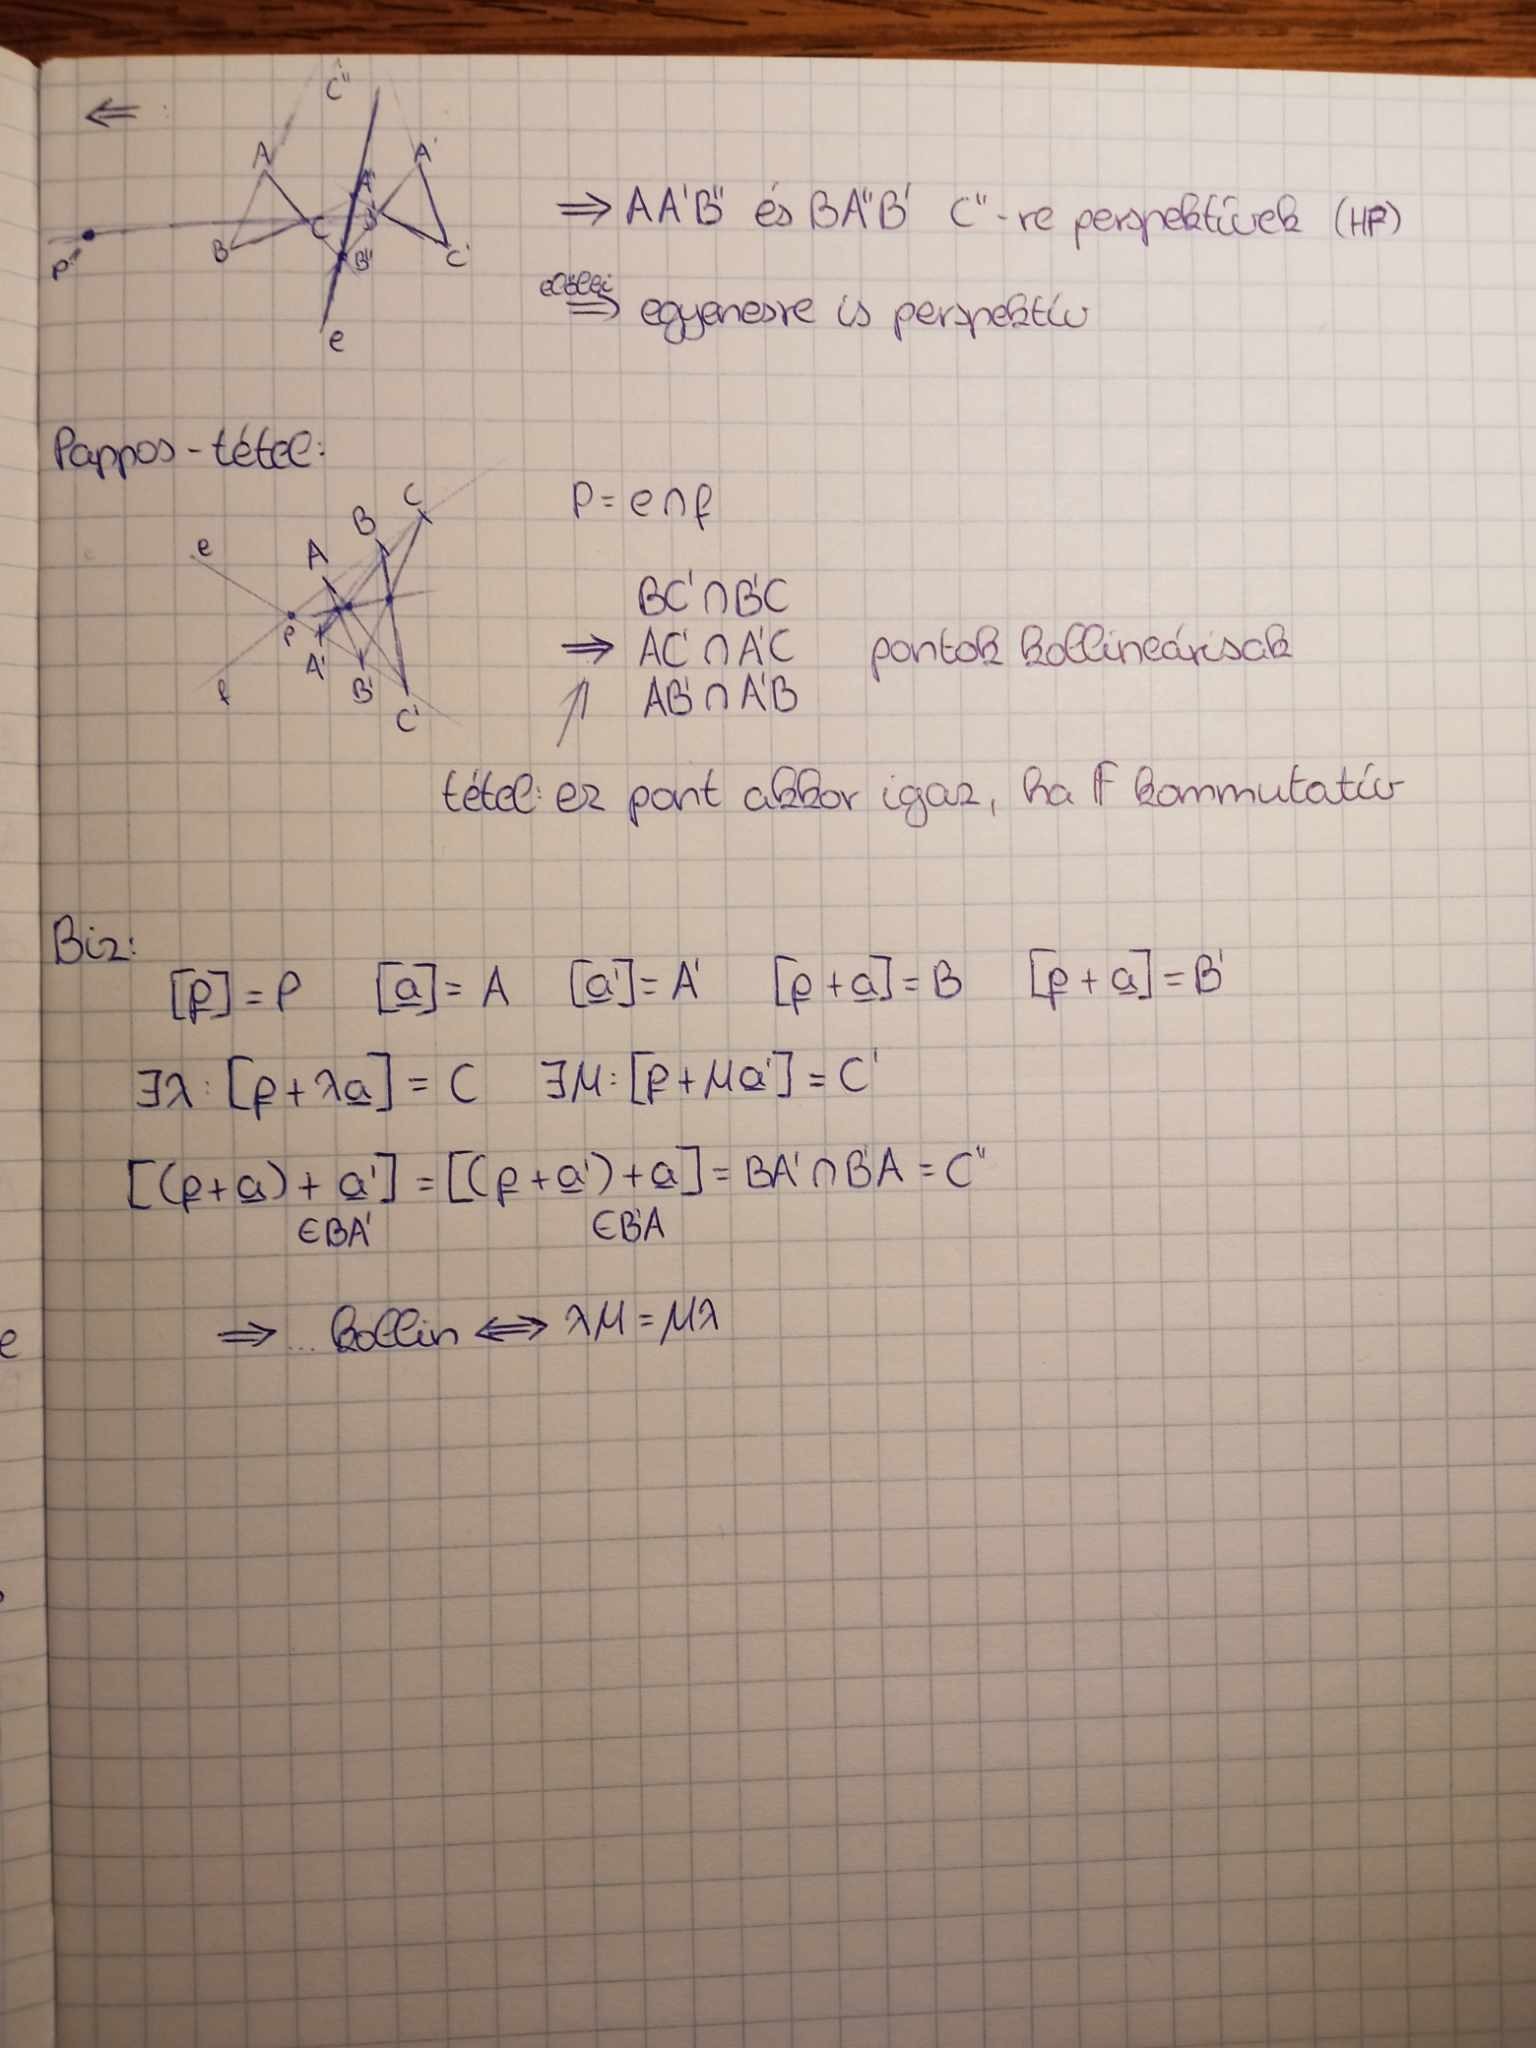 ⇐ :
C"
A A" A'
B C B' C'
P B"
e
⇒ AA'B" és BA"B' C"-re perspektívek (HF)
előbbi
⇒ egyenesre is perspektív
Pappos-tétel:
C
B
A
e
P
A'
f B'
C'
P = e∩f
BC'∩B'C
⇒ AC'∩A'C pontok kollineárisak
AB'∩A'B
tétel: ez pont akkor igaz, ha 𝔽 kommutatív
Biz:
[p] = P [a] = A [a'] = A' [p+a] = B [p+a] = B'
∃λ: [p+λa] = C ∃μ: [p+μa'] = C'
[(p+a)+a'] = [(p+a')+a] = BA'∩B'A = C"
∈BA' ∈B'A
⇒ ... kollin ⇔ λμ = μλ
e